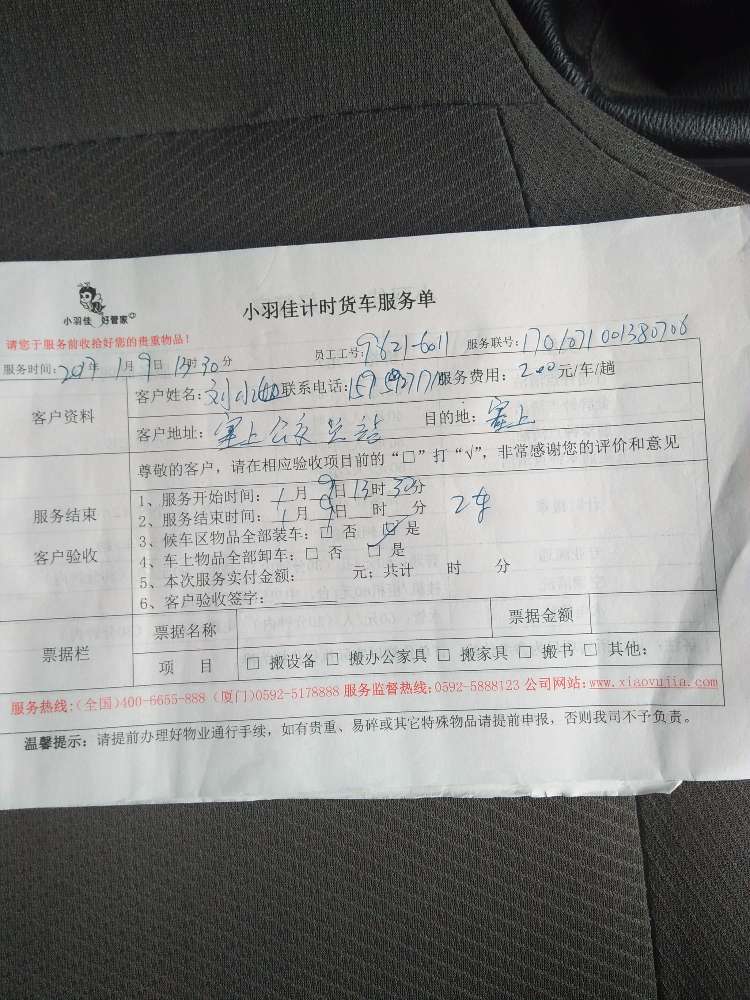 小羽佳 好管家
小羽佳计时货车服务单
请您于服务前收拾好您的贵重物品!
服务时间:2017年 1月9日 13时30分 员工工号:9621-6011 服务联号:1701071001380706
客户资料
客户姓名:刘小姐 联系电话: 服务费用:200元/车/趟
客户地址:寨上公交总站 目的地:寨上
尊敬的客户,请在相应验收项目前的“□”打“√”,非常感谢您的评价和意见
服务结束
客户验收
1、服务开始时间:1月9日13时30分
2、服务结束时间:1月9日 时 分 2车
3、候车区物品全部装车:□ 否 ☑ 是
4、车上物品全部卸车:□ 否 □ 是
5、本次服务实付金额: 元;共计 时 分
6、客户验收签字:
票据栏
票据名称 票据金额
项 目 □ 搬设备 □ 搬办公家具 □ 搬家具 □ 搬书 □ 其他:
服务热线:(全国)400-6655-888 (厦门)0592-5178888 服务监督热线:0592-5888123 公司网站:www.xiaoyujia.com
温馨提示:请提前办理好物业通行手续,如有贵重、易碎或其它特殊物品请提前申报,否则我司不予负责。